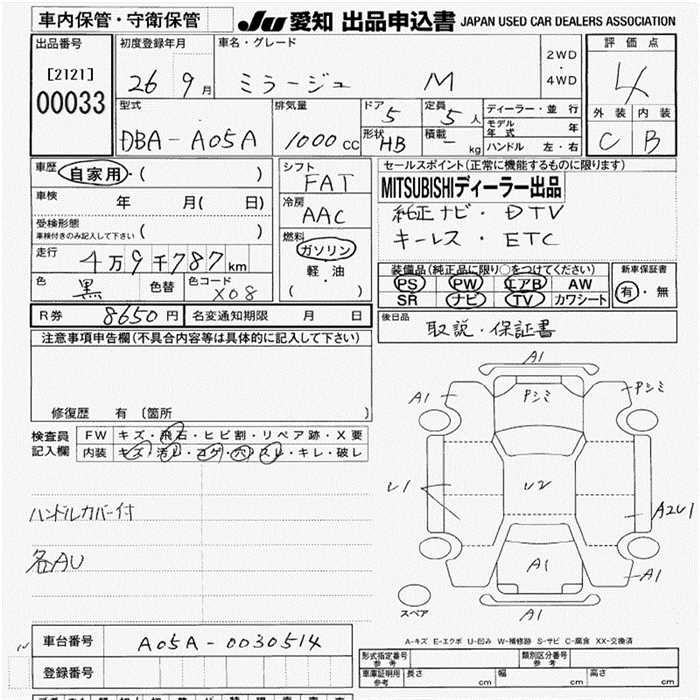 車内保管・守衛保管
JU 愛知 出品申込書 JAPAN USED CAR DEALERS ASSOCIATION
出品番号
[2121]
00033
初度登録年月
26 9月
車名・グレード
ミラージュ M
2WD
・
4WD
評価点
4
外装 内装
C B
型式
DBA-A05A
排気量
1000cc
ドア 5
形状 HB
定員 5人
積載 - kg
ディーラー・並行
モデル年式 年
ハンドル 左・右
車歴 自家用・( )
車検 年 月( 日)
受検形態
車検付きのみ記入して下さい ( )
走行 4万9千787km
色 黒 色替 色コード X08
シフト
FAT
冷房
AAC
燃料
ガソリン
軽・油
( )
セールスポイント(正常に機能するものに限ります)
MITSUBISHIディーラー出品
純正ナビ・DTV
キーレス・ETC
装備品(純正品に限り○をつけてください)
PS PW エアB AW
SR ナビ TV カワシート
新車保証書
有・無
R券 8650円 名変通知期限 月 日
後日品 取説・保証書
注意事項申告欄(不具合内容等は具体的に記入して下さい)
修復歴 有 〔箇所 〕
検査員記入欄
FW キズ・飛石・ヒビ割・リペア跡・X要
内装 キズ・汚レ・コゲ・穴・スレ・キレ・破レ
ハンドルカバー付
各AU
A1
A1
Pシミ
Pシミ
U1
U2
A2U1
A1
A1
A1
スペア
A-キズ E-エクボ U-凹み W-補修跡 S-サビ C-腐食 XX-交換済
車台番号 A05A-0030514
登録番号
形式指定番号 参考
類別区分番号 参考
車庫証明用 参考 長さ cm 幅 cm 高さ cm